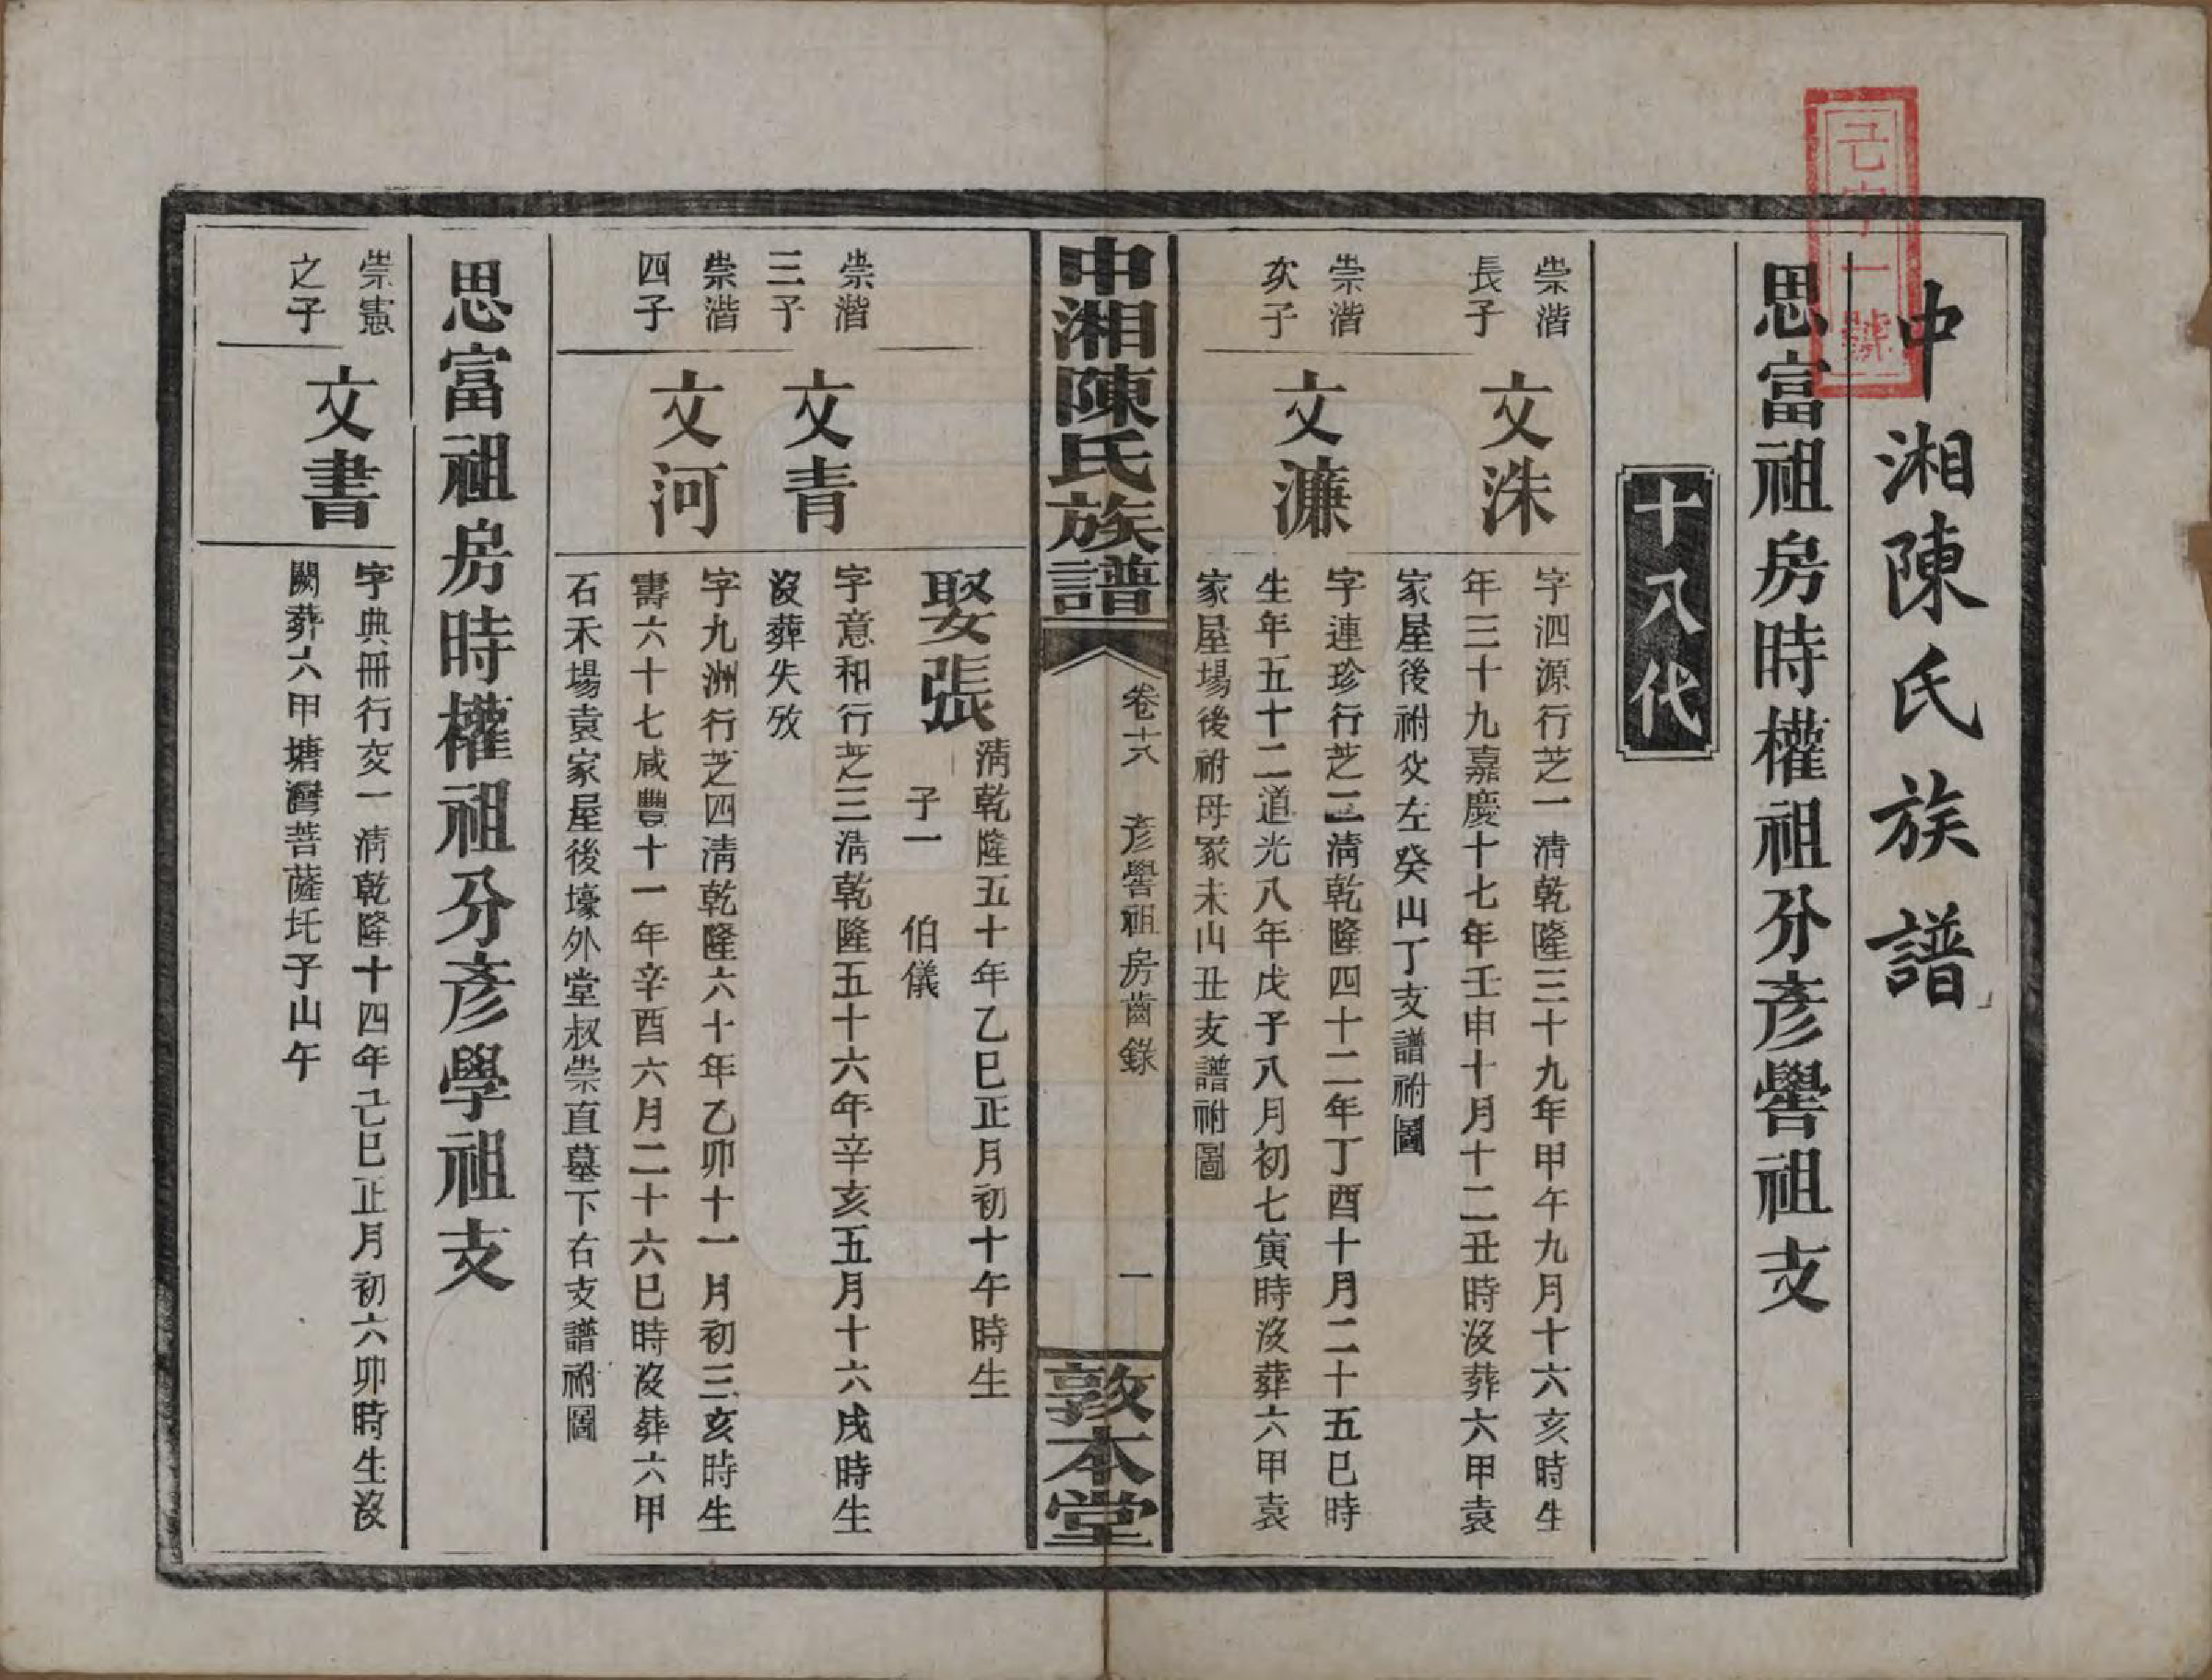 中湘陳氏族譜
思富祖房時權祖分彥譽祖支
十八代
崇湝
長子
文洙
字泗源行芝一淸乾隆三十九年甲午九月十六亥時生
年三十九嘉慶十七年壬申十月十二丑時沒葬六甲袁
家屋後祔父左癸山丁支譜祔圖
崇湝
次子
文濂
字連珍行芝二淸乾隆四十二年丁酉十月二十五巳時
生年五十二道光八年戊子八月初七寅時沒葬六甲袁
家屋場後祔母冢未山丑支譜祔圖
中湘陳氏族譜
卷十六 彥譽祖房齒錄 一
敦本堂
娶張
淸乾隆五十年乙巳正月初十午時生
子一 伯儀
崇湝
三子
文靑
字意和行芝三淸乾隆五十六年辛亥五月十六戌時生
沒葬失攷
崇湝
四子
文河
字九洲行芝四淸乾隆六十年乙卯十一月初三亥時生
壽六十七咸豐十一年辛酉六月二十六巳時沒葬六甲
石禾場袁家屋後壕外堂叔崇直墓下右支譜祔圖
思富祖房時權祖分彥學祖支
崇憲
之子
文書
字典冊行交一淸乾隆十四年己巳正月初六卯時生沒
闕葬六甲塘灣菩薩圫子山午